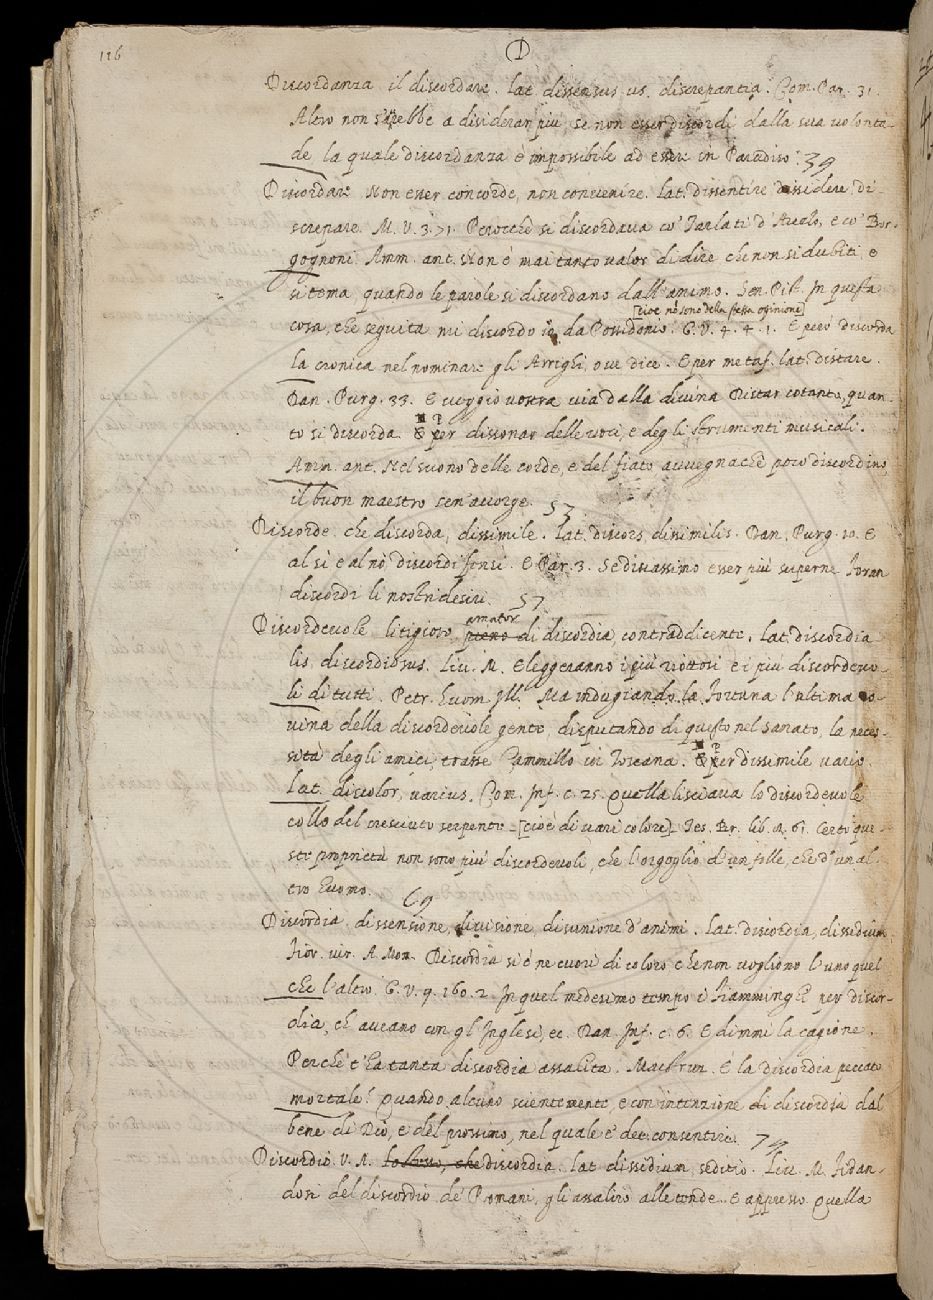 116
D
Discordanza il discordare. lat. dissensus us. discrepantia. Com. Par. 31.
Altro non sarebbe a disiderar più, se non esser discordi dalla sua volonta-
de, la quale discordanza è impossibile ad essere in Paradiso. 39
Discordare Non esser concorde, non convenire. lat. dissentire dissidere, di-
screpare. M. V. 3. 71. Perocchè si discordava co' Tarlati d' Arezzo, e co' Bor-
gognoni. Amm. ant. Non è mai tanto valor di dire che non si dubiti, e
si tema, quando le parole si discordano dall' animo. Sen. Pist. In questa
[cioè nō sono della stessa oppinione]
cosa, che seguita mi discordo io da Possidonio. G. V. 4. 4. 1. E però discorda
la cronica nel nominare gli Arrighi, ove dice. E per metaf. lat. distare.
Dan. Purg. 33. E veggio vostra via dalla divina Distar cotanto, quan-
to si discorda. E per dissonar delle voci, e degli strumenti musicali.
Amm. ant. Nel suono delle corde, e del fiato avvegnachè poco discordino,
il buon maestro sen' accorge. 57
Discorde che discorda, dissimile. lat. discors, dissimilis. Dan. Purg. 10. E
al sì e al nò discordi fensi. E Par. 3. Se disiassimo esser più superne Foran
discordi li nostri desiri. 57
amator
Discordevole litigioso, pieno di discordia, contraddicente. Lat. discordia
lis, discordiosus. Liv. M. Eleggeranno i più riottosi e i più discordevo-
li di tutti. Petr. huom. ill. Ma indugiando la fortuna l'ultima ro-
vina della discordevole gente, disputando di questo nel Sanato, la neces-
sità degli amici, trasse Cammillo in Toscana. E per dissimile vario.
Lat. discolor, varius. Com. Inf. c. 25. Quella lisciava lo discordevole
collo del cresciuto serpente [cioè di varj colore]. Tes. Br. lib. 2. 61. Certo que-
ste proprietà non sono più discordevoli, che l'orgoglio d'un folle, che d'un al-
tro huomo. 69
Discordia. dissensione, divisione, disunione d'animi. Lat. discordia, dissidium
Fior. vir. A. Mon. Discordia si è ne cuori di coloro che non vogliono l'uno quel
che l'altro. G. V. 9. 160. 2. In quel medesimo tempo i Fiamminghi per discor-
dia, ch' aveano con gl' Inglesi, ec. Dan. Inf. c. 6. E dimmi la cagione,
Perchè l'ha tanta discordia assalita. Maestruz. E la discordia peccato
mortale? Quando alcuno scientemente, e con intenzione di discordia dal
bene di Dio, e del prossimo, nel quale e' dee consentire. 74
Discordio. V. A. lo stesso, che discordia. lat. dissidium, seditio. Liv. M. Fidan-
dosi del discordio de' Romani, gli assalirò alle tende. E appresso Quella